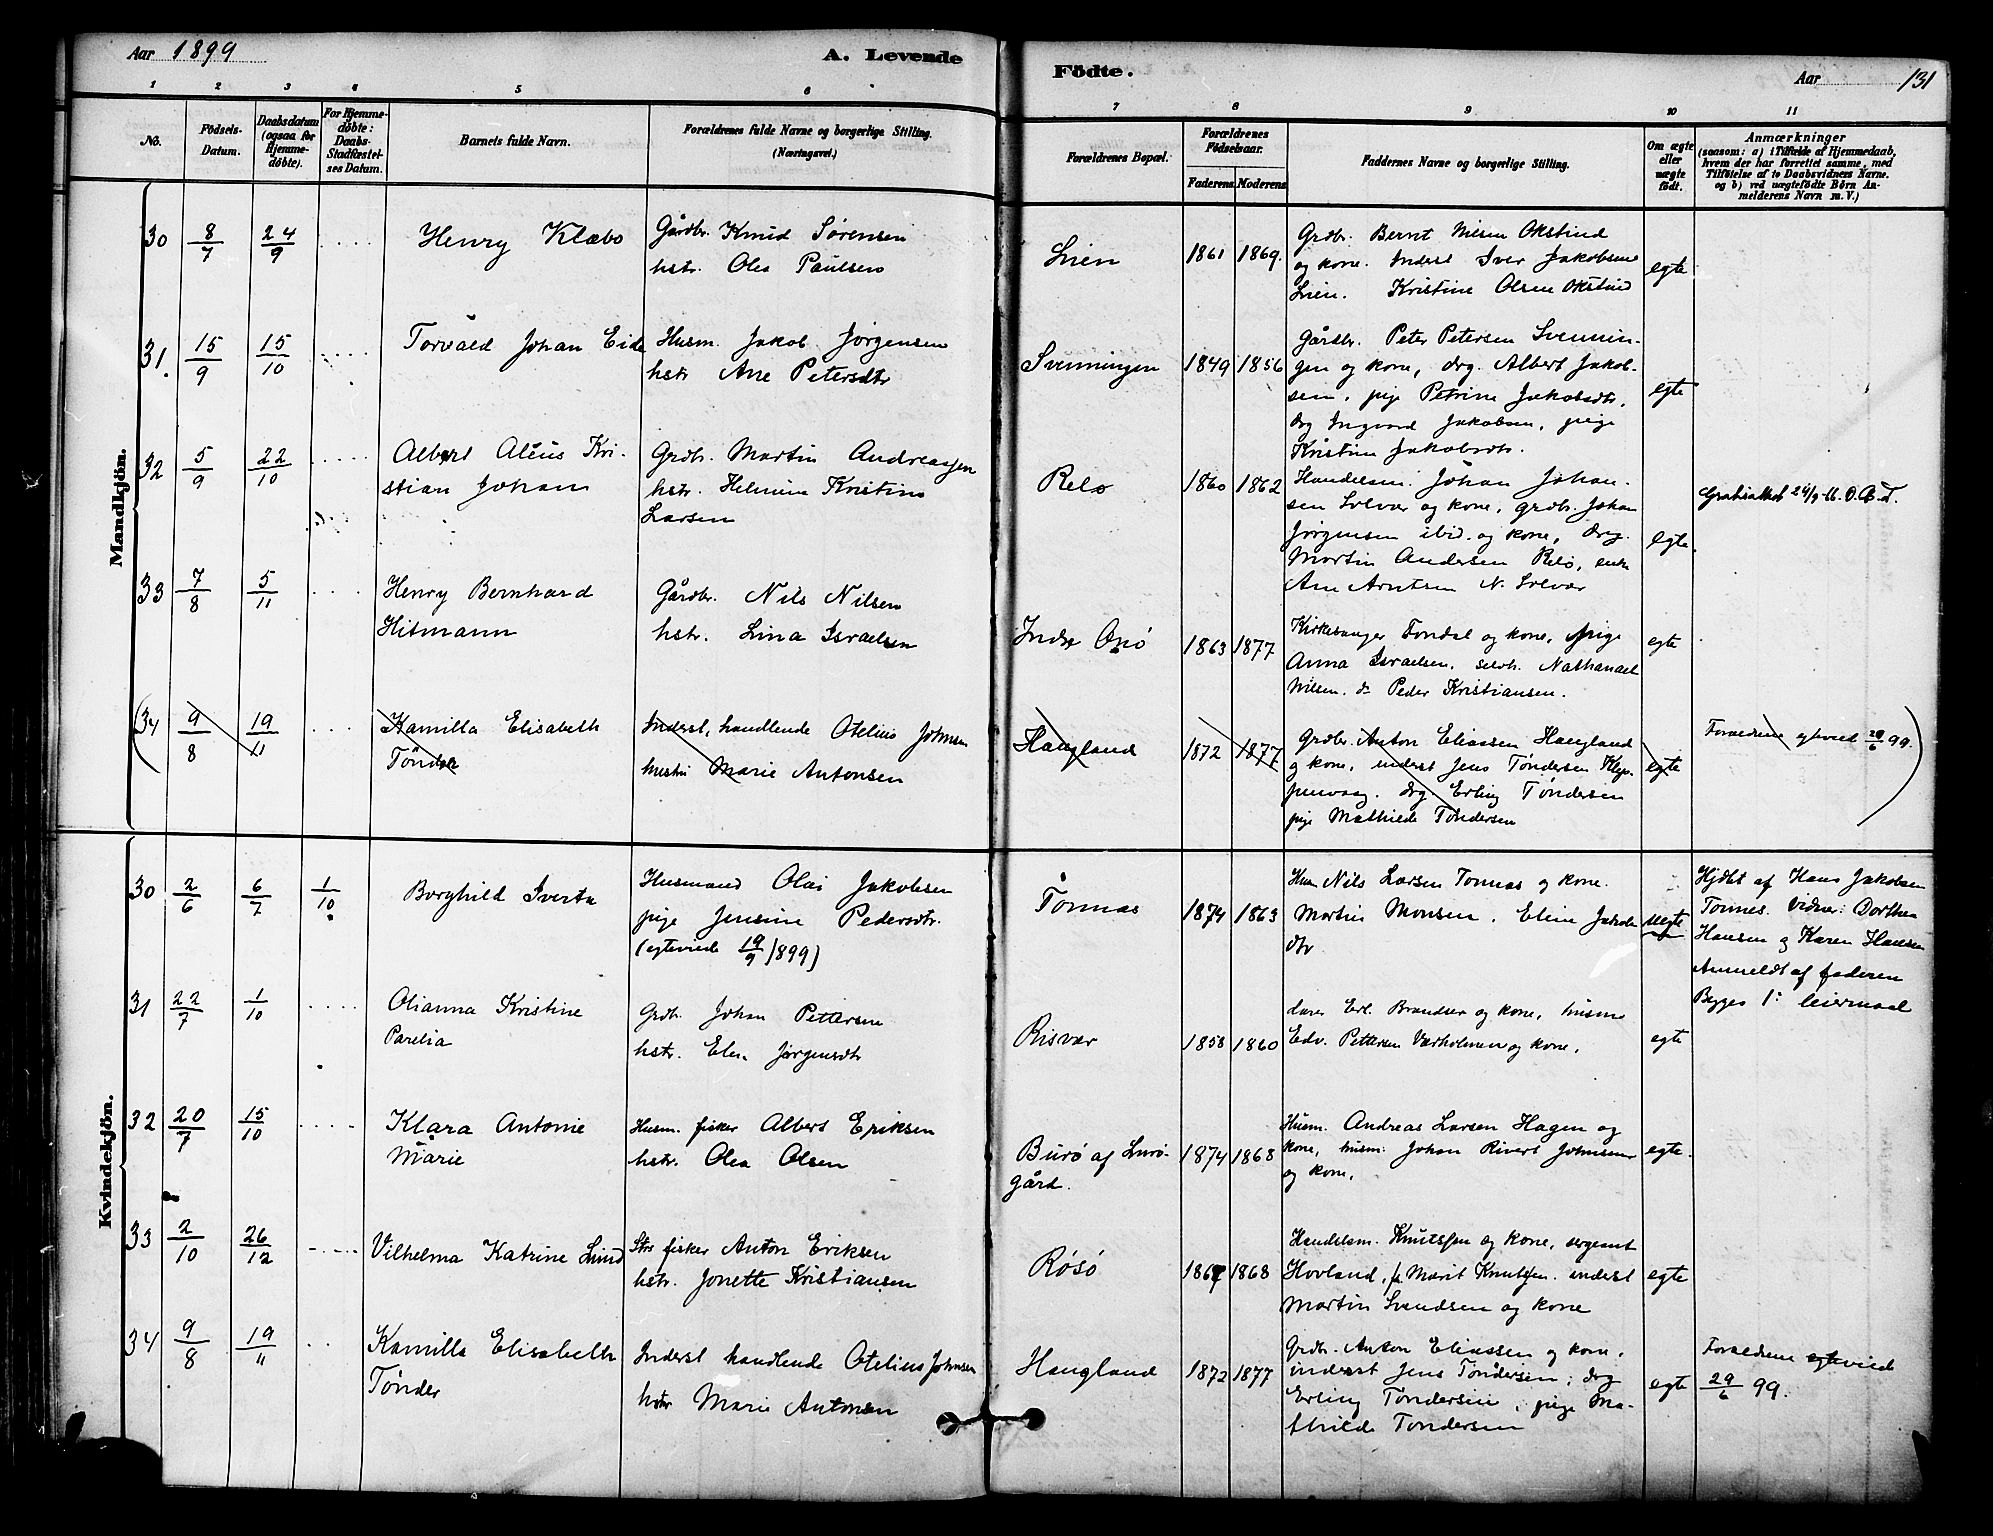 Aar 1899
A. Levende
Födte.
Aar
131
1 2 3 4 5 6 7 8 9 10 11
No.
Födsels-
Datum.
Daabsdatum
(ogsaa for
Hjemme-
døbte).
For Hjemme-
døbte:
Daabs-
Stadfæstel-
ses Datum.
Barnets fulde Navn.
Forældrenes fulde Navne og borgerlige Stilling.
(Næringsvei.)
Forældrenes Bopæl.
Forældrenes
Födselsaar.
Faderens. Moderens.
Faddernes Navne og borgerlige Stilling.
Om ægte
eller
uægte
født.
Anmærkninger
(saasom: a) i Tilfælde af Hjemmedaab,
hvem der har forrettet samme, med
Tilföielse af to Daabsvidners Navne.
og b) ved uægtefödte Börn An-
melderens Navn m. V.)
Mandkjön.
30 8/7 24/9 Henry Klæbo
Gårdbr. Knud Sørensen
hstr. Olea Paulsen
Lien 1861 1869.
Grdbr. Bernt Nilsen Okstind
og kone. Inderst Iver Jakobsen
Lien. Kristine Olsen Okstind
egte
31. 15/9 15/10 Torvald Johan Eide
Husm. Jakob Jørgensen
hstr Ane Petersdtr
Svenningen 1849 1856
Gårdbr. Peter Petersen Svennin-
gen og kone, drg. Albert Jakob-
sen, pige Petrine Jakobsdtr,
drg Ingvard Jakobsen, pige
Kristine Jakobsdtr.
egte
32 5/9 22/10 Albert Kri-
stian Johan
Grdb. Martin Andreassen
hstr. Helmine Kristine
Larsen
Relø 1860 1862
Handelsm. Johan Johan-
sen Solvær og kone, grdbr. Johan
Jørgensen ibid. og kone, drg.
Martin Andersen Relø, enke
Ane Arntsen N. Solvær
egte.
33 7/8 5/11 Henry Bernhard
Hitmann
Gårdbr. Nils Nilsen
hstr. Lina Israelsen
Indre Onø 1863 1877
Kirkesanger Tondal og kone, pige
Anna Israelsen, selvh. Nathanael
Nilsen. do Peder Kristiansen.
egte
(34 9/8 19/11 Kamilla Elisabeth
Tønder
Inderst, handlende Otelius Johnsen
hustru Marie Antonsen
Haugland 1872 1877
Grdbr. Anton Eliassen Haugland
og kone, inderst Jens Tøndersen
drg. Erling Tøndersen
pige Mathilde Tøndersen
egte
Forældrene egteviet 29/6 99.)
Kvindekjön.
30 2/6 6/7 1/10 Borghild Iverta
Husmand Olai Jakobsen
pige Jensine Pedersdtr.
(egteviede 19/9 1899)
Tonnas 1874 1863
Husm Nils Larsen Tonnas og kone.
Martin Monsen, Eline Jakobs
dtr
uegte
Hjdbt af Hans Jakobsen
Tonnes. Vidner: Dorthea
Hansen og Karen Hansen
Anmeldt af faderen
Begges 1ste leiermaal
31 22/7 1/10 Olianna Kristine
Parelia
Grdb. Johan Pettersen
hstr. Elen Jørgensdtr
Risvær 1858 1860
Erl. Brandser og kone, husm
Edv. Pettersen Værholmen og kone.
egte
32 20/7 15/10 Klara Antonie
Marie
Husm. fisker Albert Eriksen
hstr. Olea Olsen
Burø af Lurø-
gård. 1874 1868
Husm. Andreas Larsen Hagen og
kone, husm: Johan Rivert Johnsen
og kone.
egte.
33 2/10 26/12 Vilhelma Katrine Lund
fisker Anton Eriksen
hstr. Jonette Kristiansen
Røsø 1867 1868
Handelsm. Knutssen og kone, sergeant
Hovland, fr Marit Knutssen. inderst
Martin Svendsen og kone
egte
34 9/8 19/11 Kamilla Elisabeth
Tønder
Inderst handlende Otelius Johnsen
hstr Marie Antonsen
Haugland 1872 1877
Grdbr. Anton Eliassen og kone,
inderst Jens Tøndersen, drg
Erling Tøndersen, pige Ma-
thilde Tøndersen
egte
Forældrene egteviet
29/6 99.